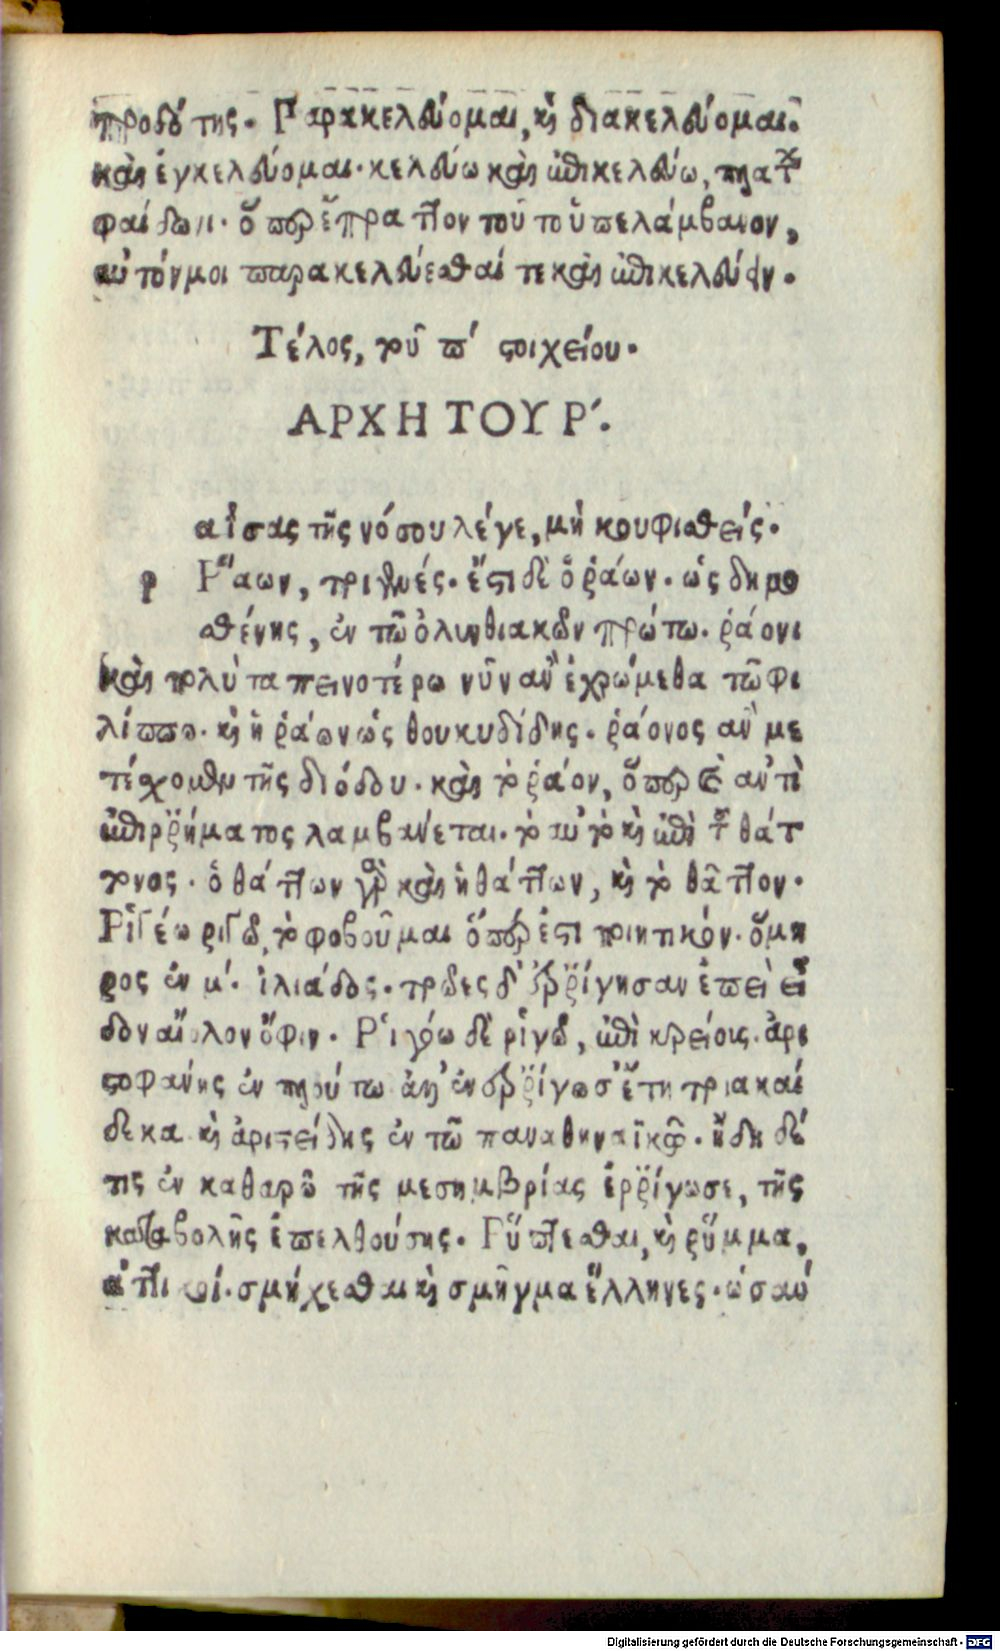 προδότης. Παρακελεύομαι, καὶ διακελεύομαι.
καὶ ἐγκελεύομαι. κελεύω καὶ ἐπικελεύω, πλάτ
φαίδωνι. ὅπερ ἔπραττον τοῦτο ὑπελάμβανον,
αὐτόν μοι παρακελεύεσθαί τε καὶ ἐπικελεύειν.
Τέλος, τοῦ π´ στοιχείου.
ΑΡΧΗ ΤΟΥ Ρ´.
αΐσας τῆς νόσου λέγε, μὴ κουφισθείς.
ρ Ῥάων, τριγενές. ἔστι δὲ ὁ ῥάων. ὡς δημο
σθένης, ἐν τῷ ὀλυνθιακῶν πρώτω. ῥάονι
καὶ πολὺ ταπεινοτέρω νῦν ἂν ἐχρώμεθα τῷ φι
λίππω. καὶ ἡ ῥάων ὡς θουκυδίδης. ῥάονος ἂν με
τέχοιμεν τῆς διόδου. καὶ τὸ ῥάον, ὅπερ καὶ ἀντὶ
ἐπιρρήματος λαμβάνεται. τὸ αὐτὸ καὶ ἐπὶ τοῦ θάτ
τονος. ὁ θάττων γὰρ καὶ ἡ θάττων, καὶ τὸ θᾶττον.
Ῥιγέω ριγῶ, τὸ φοβοῦμαι ὅπερ ἐστι ποιητικόν. ὅμη
ρος ἐν μ´. ἰλιάδος. τρῶες δ' ἐρρίγησαν ἐπεὶ εἶ
δον αἴολον ὄφιν. Ῥιγόω δὲ ῥιγῶ, ἐπὶ κρείοις. ἀρι
στοφάνης ἐν πλούτω ἀλλ' ἐνερρίγωσ' ἔτη τριακαί
δεκα καὶ ἀριστείδης ἐν τῷ παναθηναϊκῷ. ἤδη δέ
τις ἐν καθαρῷ τῆς μεσημβρίας ἐρρίγωσε, τῆς
καταβολῆς ἐπελθούσης. Ῥύπτεσθαι, καὶ ῥύμμα,
ἀττικοί. σμήχεσθαι καὶ σμῆγμα ἕλληνες. ὡσαύ
Digitalisierung gefördert durch die Deutsche Forschungsgemeinschaft - DFG